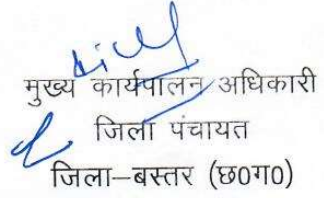 मुख्य कार्यपालन अधिकारी
जिला पंचायत
जिला–बस्तर (छ0ग0)